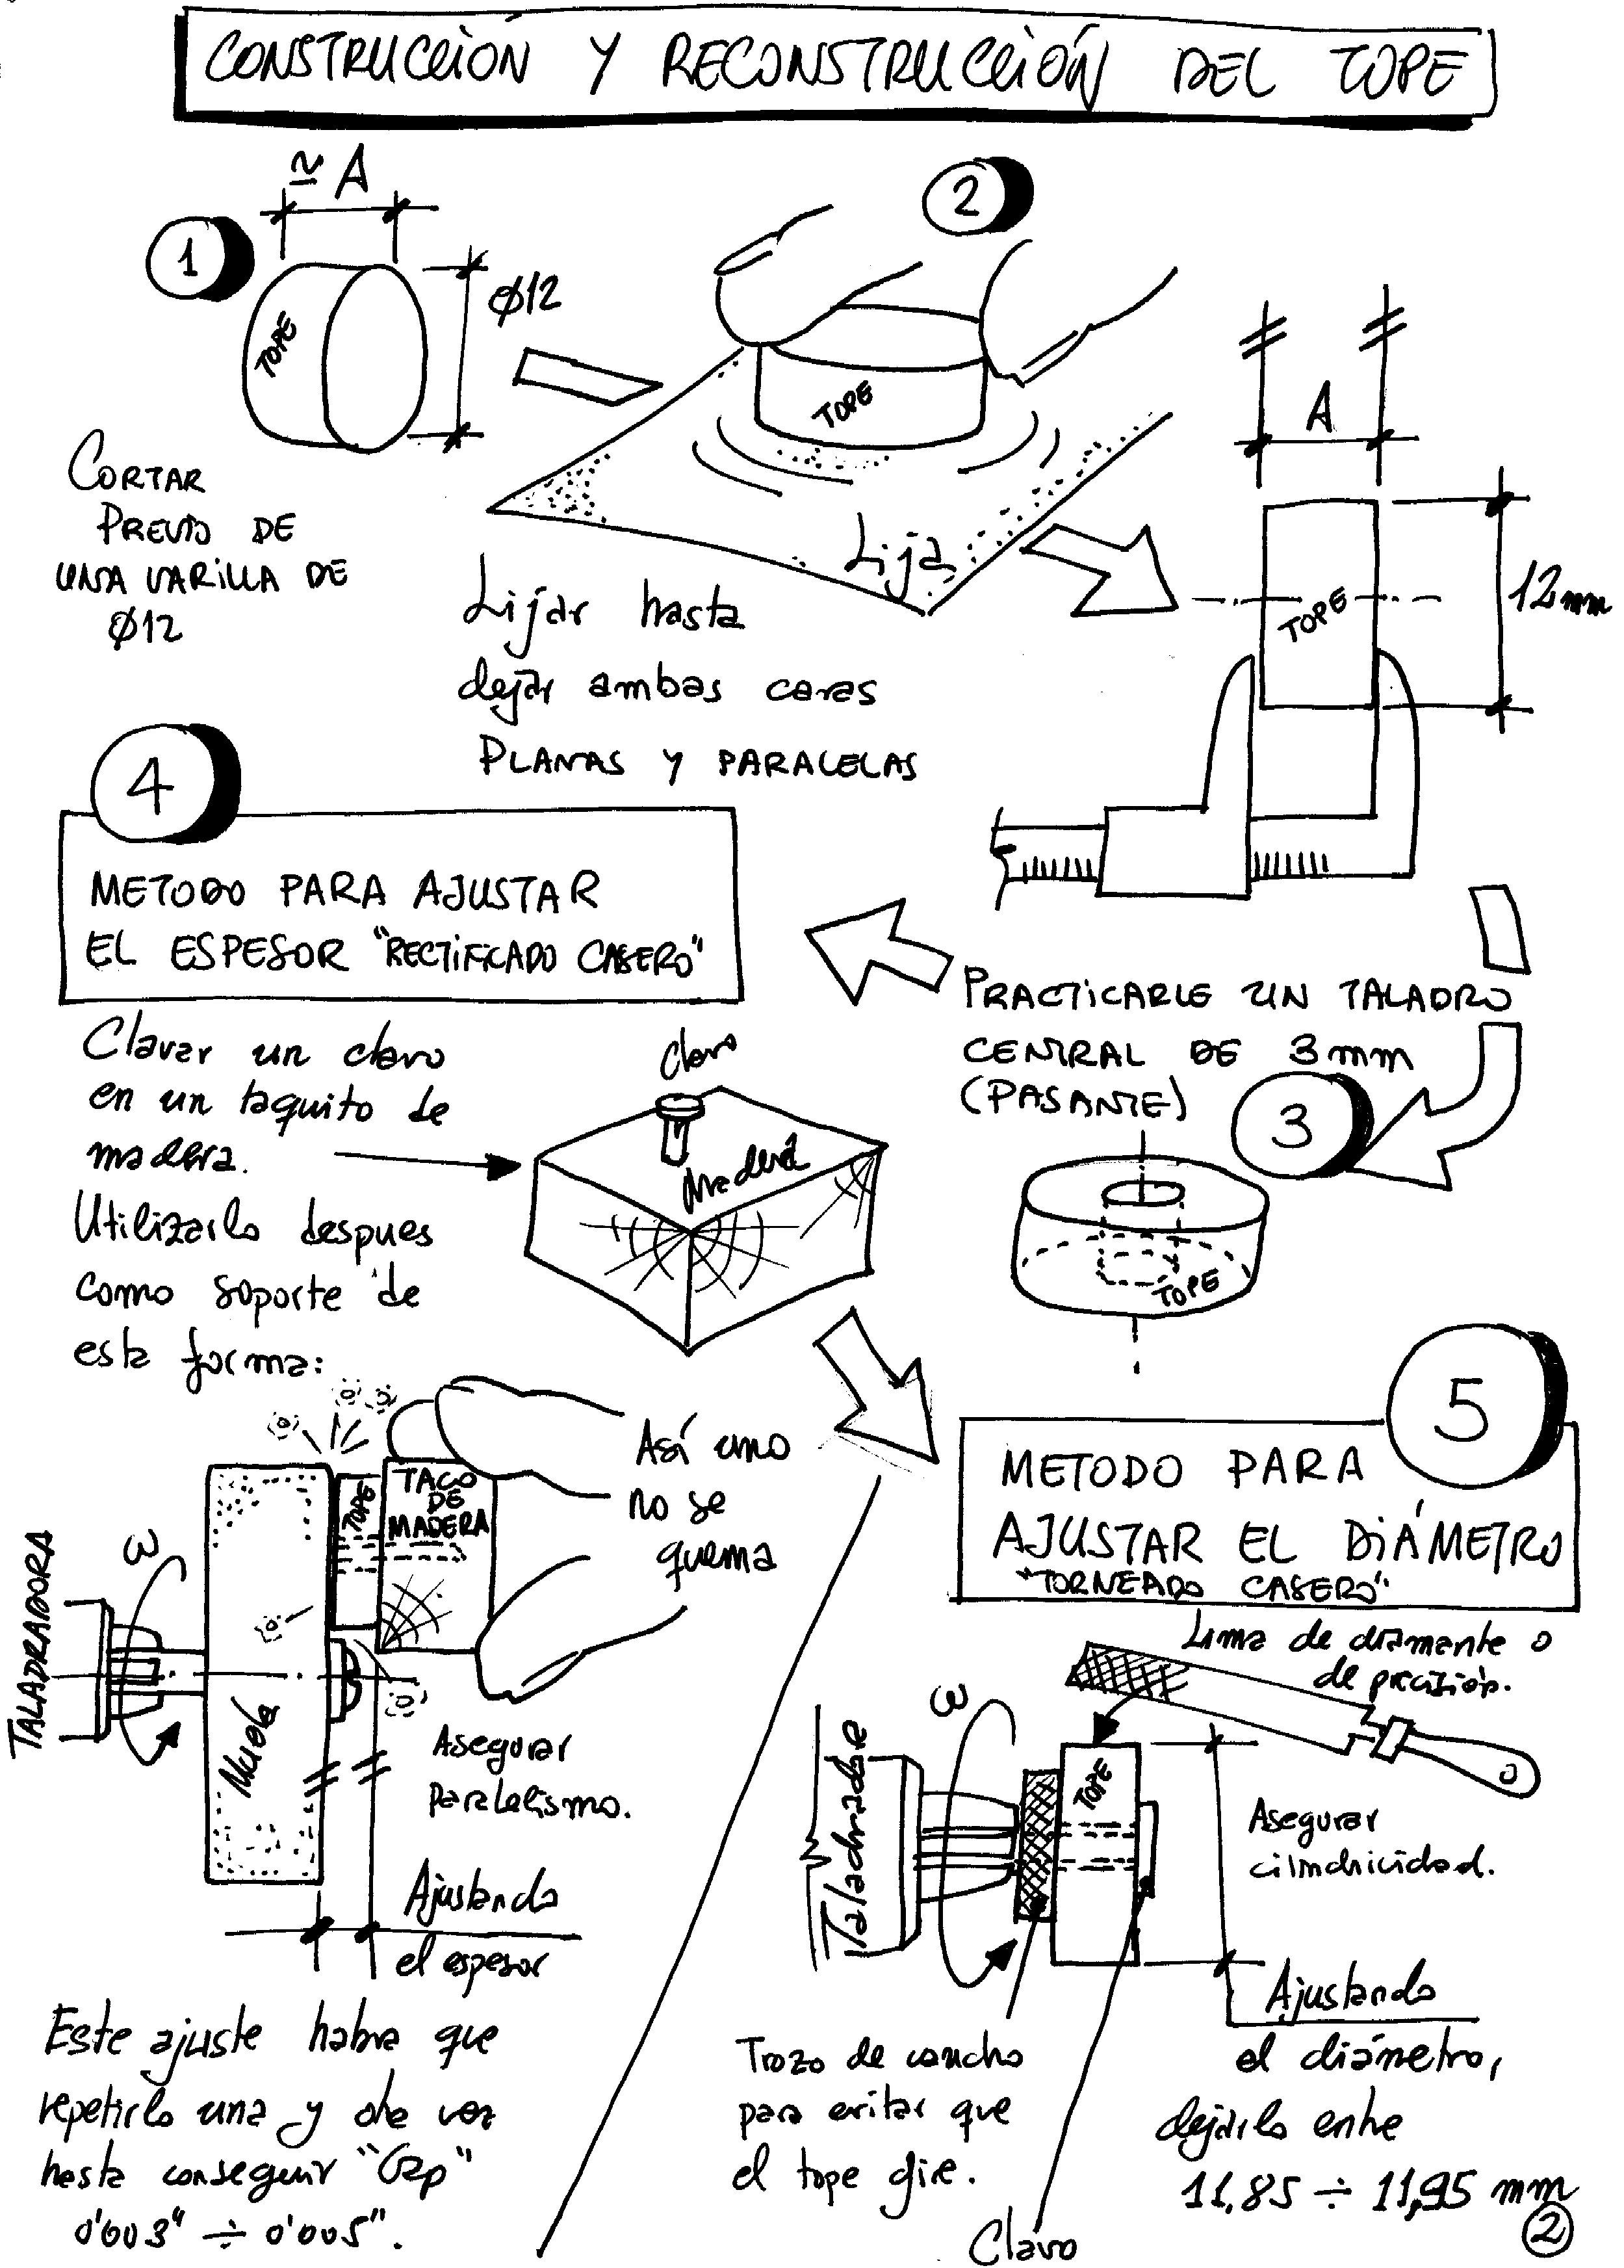 CONSTRUCCIÓN Y RECONSTRUCCIÓN DEL TOPE
1
≃ A
Ø12
TOPE
CORTAR
PREVIO DE
UNA VARILLA DE
Ø12
2
TOPE
Lija
Lijar hasta
dejar ambas caras
PLANAS Y PARALELAS
A
12mm
TOPE
PRACTICARLE UN TALADRO
CENTRAL DE 3mm
(PASANTE)
3
TOPE
4
METODO PARA AJUSTAR
EL ESPESOR "RECTIFICADO CASERO"
Clavar un clavo
en un taquito de
madera.
Utilizarlo despues
como soporte de
esta forma:
Clavo
Madera
TALADRADORA
ω
Muela
TOPE
TACO
DE
MADERA
Así uno
no se
quema
Asegurar
Paralelismo.
Ajustando
el espesor
Este ajuste habra que
repetirlo una y otra vez
hasta conseguir "Gap"
0'003" ÷ 0'005".
5
METODO PARA
AJUSTAR EL DIÁMETRO
"TORNEADO CASERO"
Lima de diamante o
de precisión.
Taladradora
ω
TOPE
Asegurar
cilindricidad.
Ajustando
el diámetro,
dejarlo entre
11,85 ÷ 11,95 mm
Trozo de caucho
para evitar que
el tope gire.
Clavo
2